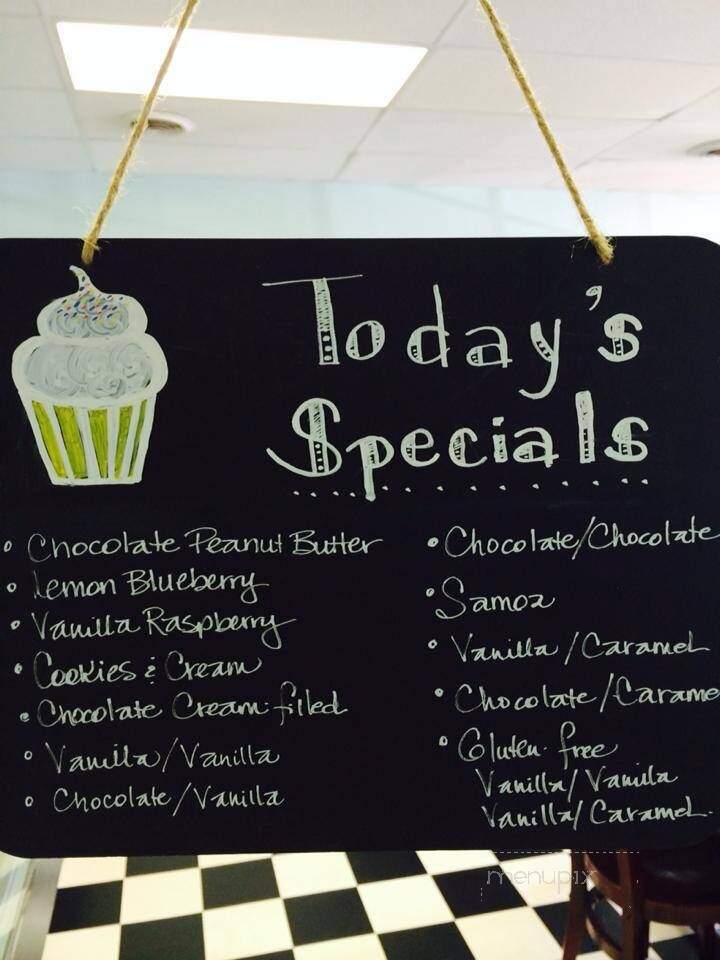 Today's
Specials
• Chocolate Peanut Butter
• Lemon Blueberry
• Vanilla Raspberry
• Cookies & Cream
• Chocolate Cream-filled
• Vanilla/Vanilla
• Chocolate/Vanilla
• Chocolate/Chocolate
• Samoa
• Vanilla/Caramel
• Chocolate/Carame
• Gluten-free
Vanilla/Vanilla
Vanilla/Caramel.
menupix